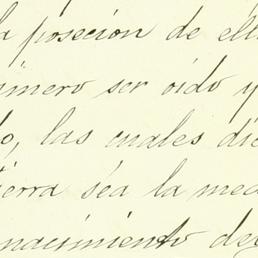 a poseción de ell
rimero ser oido y
do, las cuales die
tierra séa la med
nacimiento de